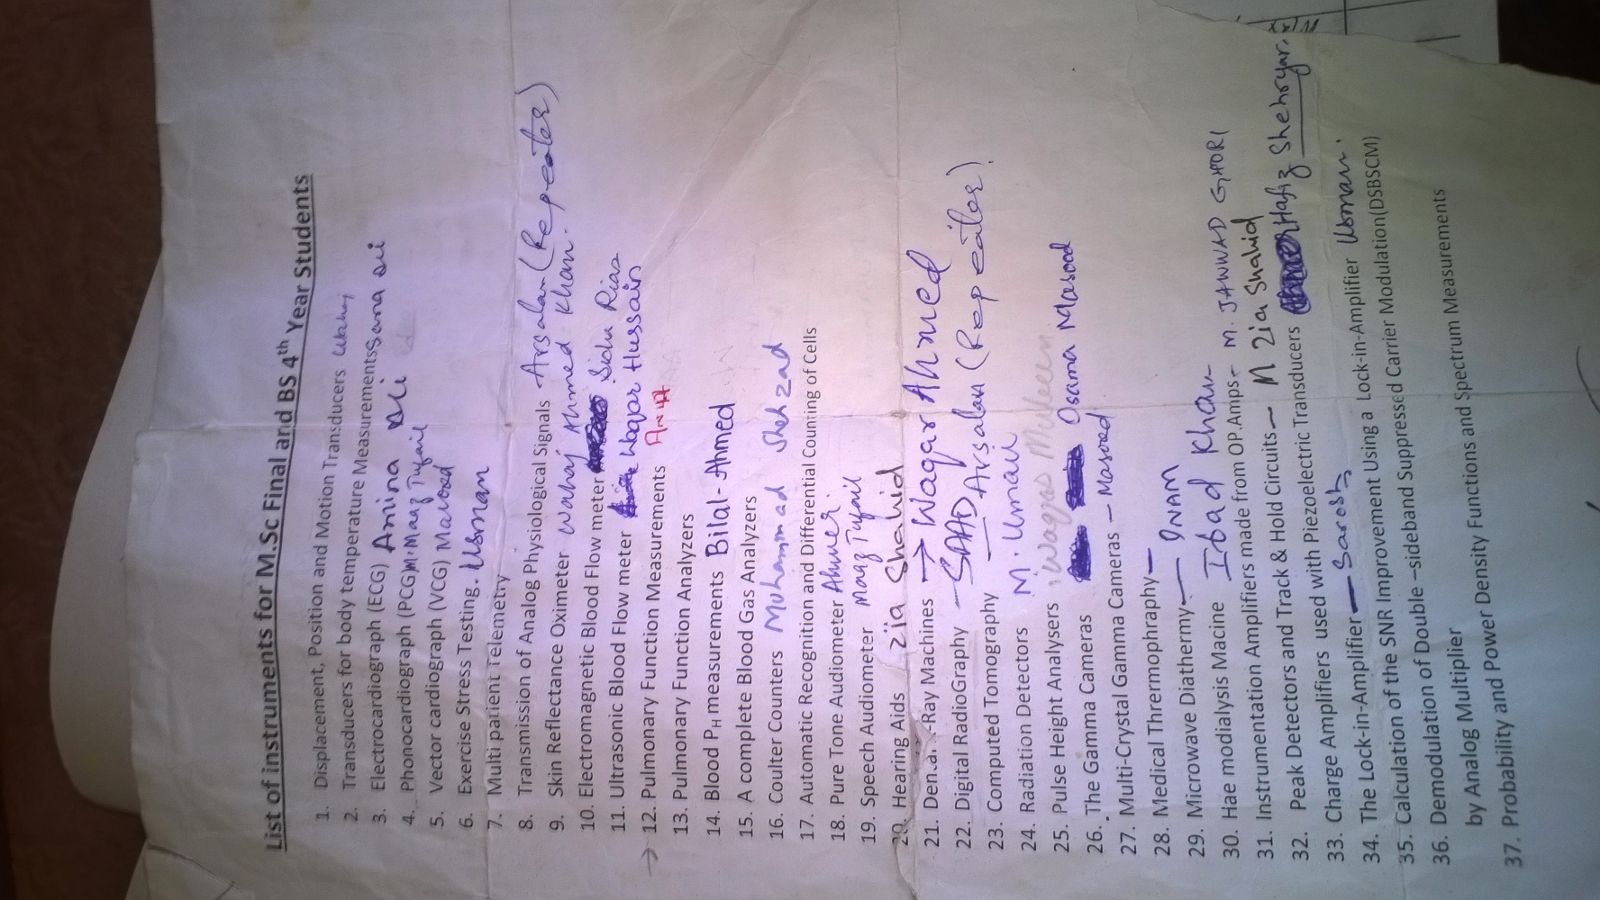 List of instruments for M.Sc Final and BS 4th Year Students
1. Displacement, Position and Motion Transducers Wahaj
2. Transducers for body temperature Measurements Sana Ali
3. Electrocardiograph (ECG) Amina Ali
4. Phonocardiograph (PCG) M. Maaz Tufail
5. Vector cardiograph (VCG) Masood
6. Exercise Stress Testing. Usman
7. Multi patient Telemetry
8. Transmission of Analog Physiological Signals Arsalan (Repeater)
9. Skin Reflectance Oximeter Wahaj Ahmed Khan.
10. Electromagnetic Blood Flow meter Sidra Riaz
11. Ultrasonic Blood Flow meter Waqar Hussain
→ 12. Pulmonary Function Measurements
13. Pulmonary Function Analyzers
14. Blood PH measurements Bilal-Ahmed
15. A complete Blood Gas Analyzers
16. Coulter Counters Muhammad Shehzad
17. Automatic Recognition and Differential Counting of Cells
18. Pure Tone Audiometer Ahmer.
19. Speech Audiometer Maaz Tufail
20. Hearing Aids Zia Shahid
21. -Ray Machines → Waqar Ahmed
22. Digital RadioGraphy – SAAD
23. Computed Tomography — Arsalan (Repeater)
24. Radiation Detectors M. Umair
25. Pulse Height Analysers Waqqas
26. The Gamma Cameras Osama Masood
27. Multi-Crystal Gamma Cameras – Masood
28. Medical Thrermophraphy –
29. Microwave Diathermy — INAM
30. Hae modialysis Macine Ibad Khan
31. Instrumentation Amplifiers made from OP.Amps - M. JAWWAD GHORI
32. Peak Detectors and Track & Hold Circuits – M Zia Shahid
33. Charge Amplifiers used with Piezoelectric Transducers Hafiz Shehryar.
34. The Lock-in-Amplifier – Sarosh
35. Calculation of the SNR Improvement Using a Lock-in-Amplifier Usman.
36. Demodulation of Double –sideband Suppressed Carrier Modulation(DSBSCM)
by Analog Multiplier
37. Probability and Power Density Functions and Spectrum Measurements